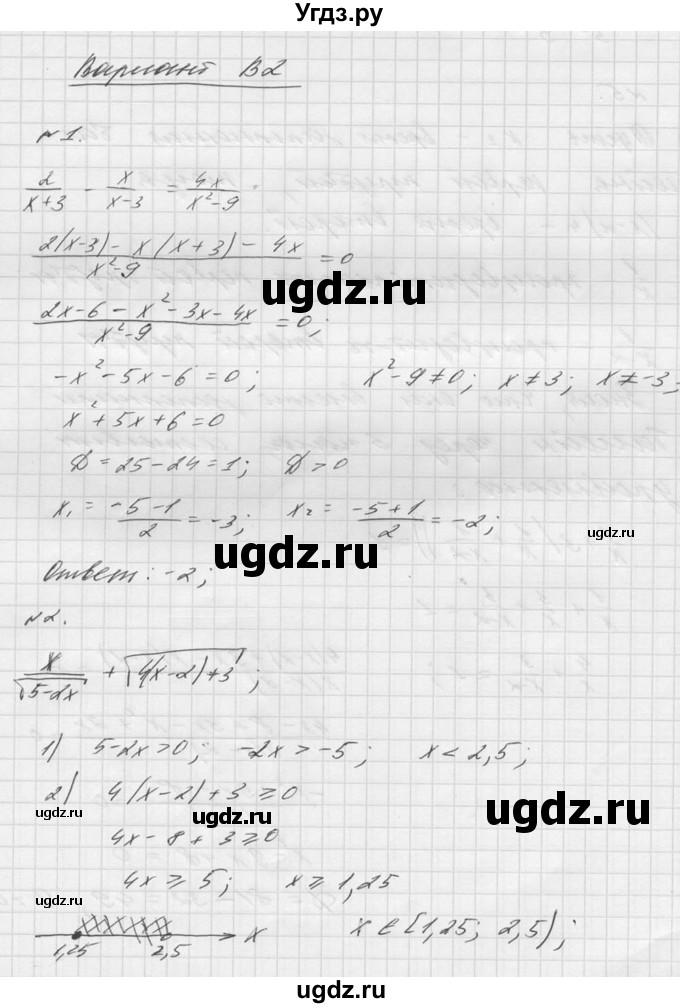 Угдз.ру
Вариант B2
№1.
2/(x+3) - x/(x-3) = 4x/(x²-9).
(2(x-3) - x(x+3) - 4x)/(x²-9) = 0
ugdz.ru ugdz.ru
(2x-6-x²-3x-4x)/(x²-9) = 0;
-x²-5x-6=0; x²-9≠0; x≠3; x≠-3;
x²+5x+6=0
D=25-24=1; D>0
x₁ = (-5-1)/2 = -3; x₂ = (-5+1)/2 = -2;
ugdz.ru ugdz.ru
Ответ: -2;
№2.
x/√(5-2x) + √(4(x-2)+3);
1) 5-2x>0; -2x>-5; x<2,5;
2) 4(x-2)+3≥0
ugdz.ru ugdz.ru ugdz.ru
4x-8+3≥0
4x≥5; x≥1,25
x x∈[1,25; 2,5);
1,25 2,5
ugdz.ru ugdz.ru